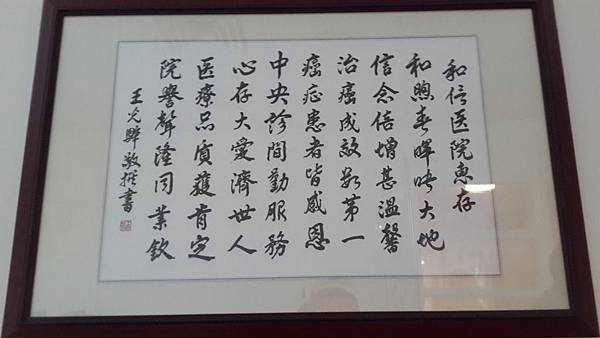 和信医院惠存
和煦春暉大地
信念倍增甚溫馨
治癌成效第一
癌症患者皆感恩
中央診間勤服務
心存大愛濟世人
医療品质獲肯定
院譽聲隆同業欽
王光敬撰書